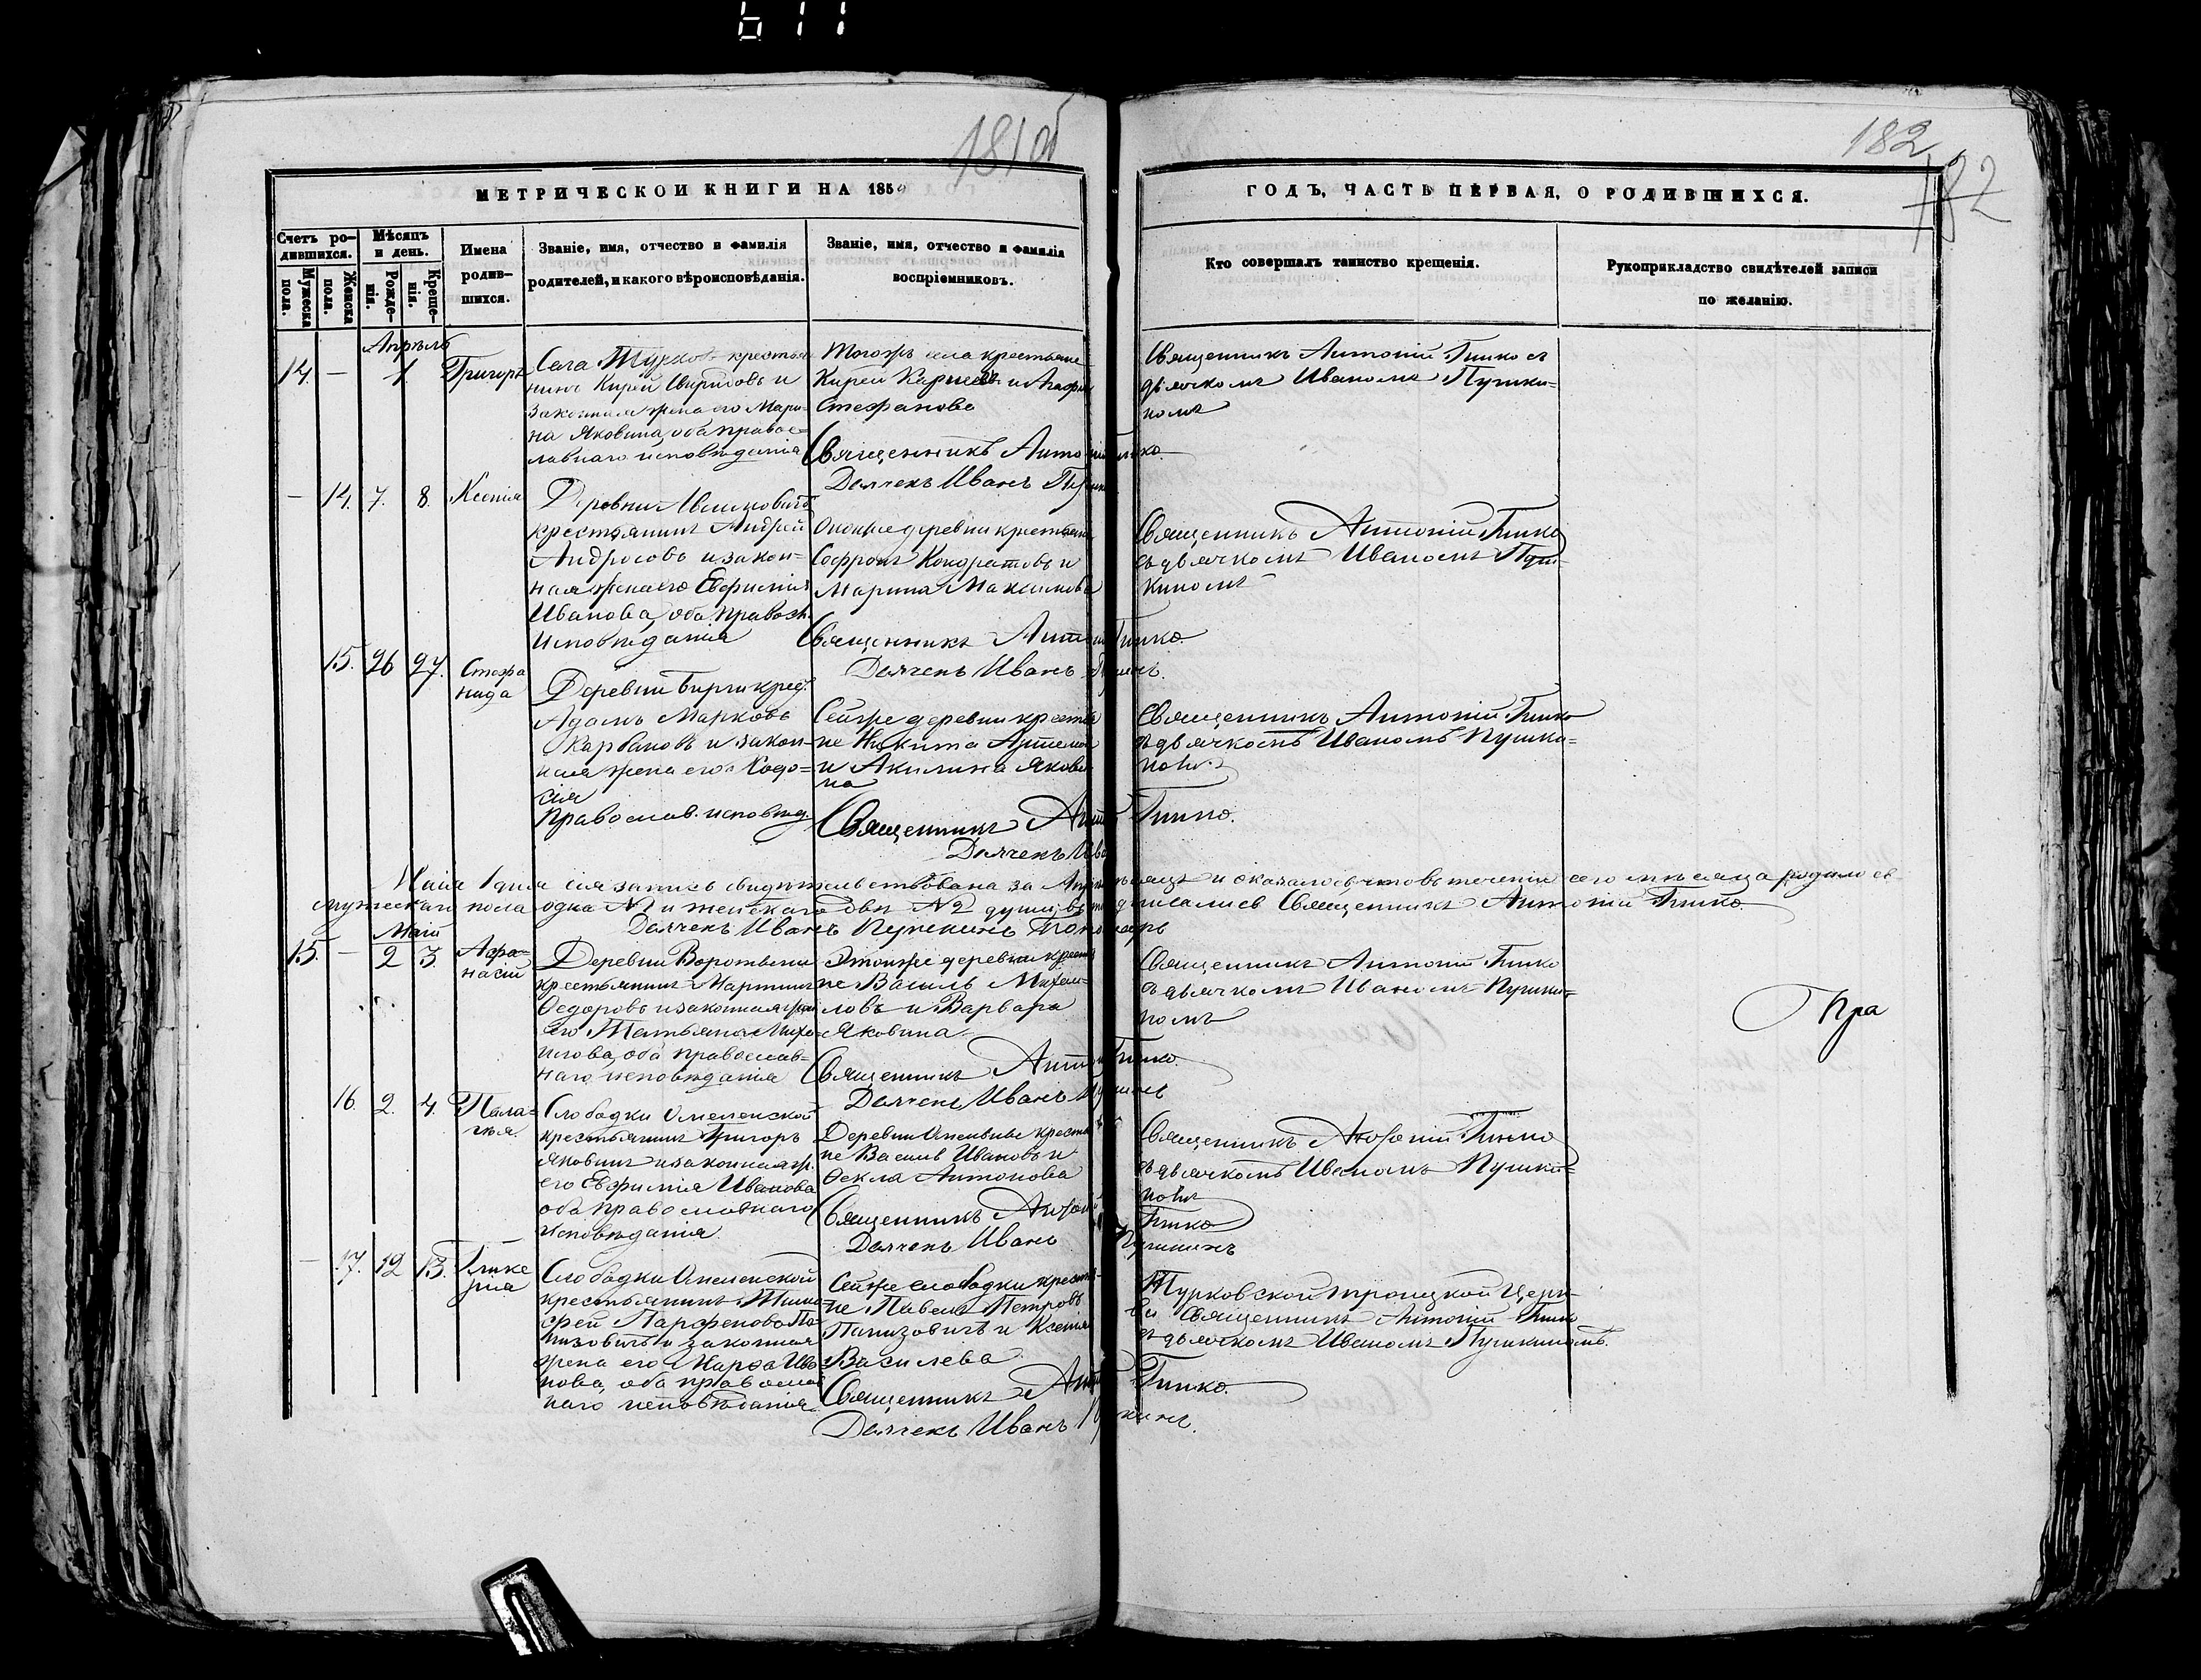 611
181 об
182
182
МЕТРИЧЕСКОЙ КНИГИ НА 185
ГОДЪ, ЧАСТЬ ПЕРВАЯ, О РОДИВШИХСЯ.
Счетъ ро-
дившихся.
Мужеска
пола.
Женска
пола.
Мѣсяцъ
и день.
Рожде-
нія.
Креще-
нія.
Имена
родив-
шихся.
Званіе, имя, отчество и фамилія
родителей, и какого вѣроисповѣданія.
Званіе, имя, отчество и фамилія
воспріемниковъ.
Кто совершалъ таинство крещенія.
Рукоприкладство свидѣтелей записи
по желанію.
Апрѣль
14. — 1. Григорь
Села Турковъ крестья
нинъ Кирей Свиридовъ и
законная жена его Мари-
на Яковина, оба правос-
лавнаго исповѣданія
Тогожъ села крестьяне
Кирей и Агафия
Стефанова
Священникъ Антоній Гинко.
Дьячекъ Иванъ
Священникъ Антоній Гинко съ
дьячкомъ Иваномъ Пушки-
номъ
— 14. 7. 8. Ксенія
Деревни
крестьянинъ Андрей
Андросовъ и закон-
ная жена его Евфимія
Иванова, оба правосл.
исповѣданія
Оноиже деревни крестьяне
Софронъ Кондратовъ и
Марина Максимова
Священникъ Антоній Гинко.
Дьячекъ Иванъ
Священникъ Антоній Гинко
съ дьячкомъ Иваномъ Пуш-
киномъ
15. 26 27. Стефа
нида
Деревни Бирчи крест.
Адамъ Марковъ
Карбановъ и закон-
ная жена его Ходо-
сія
Православ. исповѣд.
Сейже деревни крестья
не Никита Артемов
и Акилина Якови
на
Священникъ Гинко.
Дьячекъ Ива
Священникъ Антоній Гинко
съ дьячкомъ Иваномъ Пушки-
номъ
Маія 1 дня сія запись свидѣтельствована за и оказалось, что въ теченіи сего мѣсяца родилось
мужескаго пола одна №1 и женскаго двѣ №2 души, въ томъ подписались Священникъ Антоній Гинко
Дьячекъ Иванъ Пушкинъ Пономарь
Май
15. — 2 3. Афа-
насій
Деревни Воротьини
крестьянинъ Мартинъ
Федоровъ и законная жена
его Татьяна Михо-
илова, оба православ-
наго исповѣданія
Этоиже деревни крестья
не Василь Михаи-
ловъ и Варвара
Яковина
Священникъ Антоній Гинко.
Дьячекъ Иванъ Пушкинъ
Священникъ Антоній Гинко
съ дьячкомъ Иваномъ Пушки-
номъ
Пра
16. 2. 4. Пела-
гея
Слободки Омеленской
крестьянинъ Григорь
Яковинъ и законная ж.
его Евфимія Иванова
оба православнаго
исповѣданія
Деревни крестья
не Василь Ивановъ и
Фекла Антонова
Священникъ Антоній Гинко
Дьячекъ Иванъ Пушкинъ
Священникъ Антоній Гинко
съ дьячкомъ Иваномъ Пушки-
номъ
— 17. 12 13. Глике
рія
Слободки Омеленской
крестьянинъ Тимо-
фей Парфеновъ По-
низовичъ и законная
жена его Марфа Ива-
нова, оба православ
наго исповѣданія
Сейже слободки крестья-
не Павелъ Петровъ
Панизовичъ и Ксенія
Василева
Священникъ Антоній Гинко.
Дьячекъ Иванъ Пушкинъ.
Турковской троицкой Церк-
ви Священникъ Антоній Гинко
съ дьячкомъ Иваномъ Пушкиномъ.